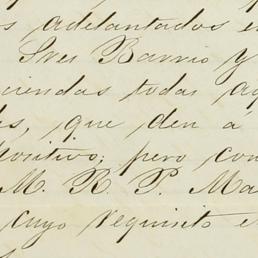 s adelantados e
Sres Barrio y
ciendas todas aq
es, que den á
positivo; pero con
M. R. P. Ma
cuyo requisito e